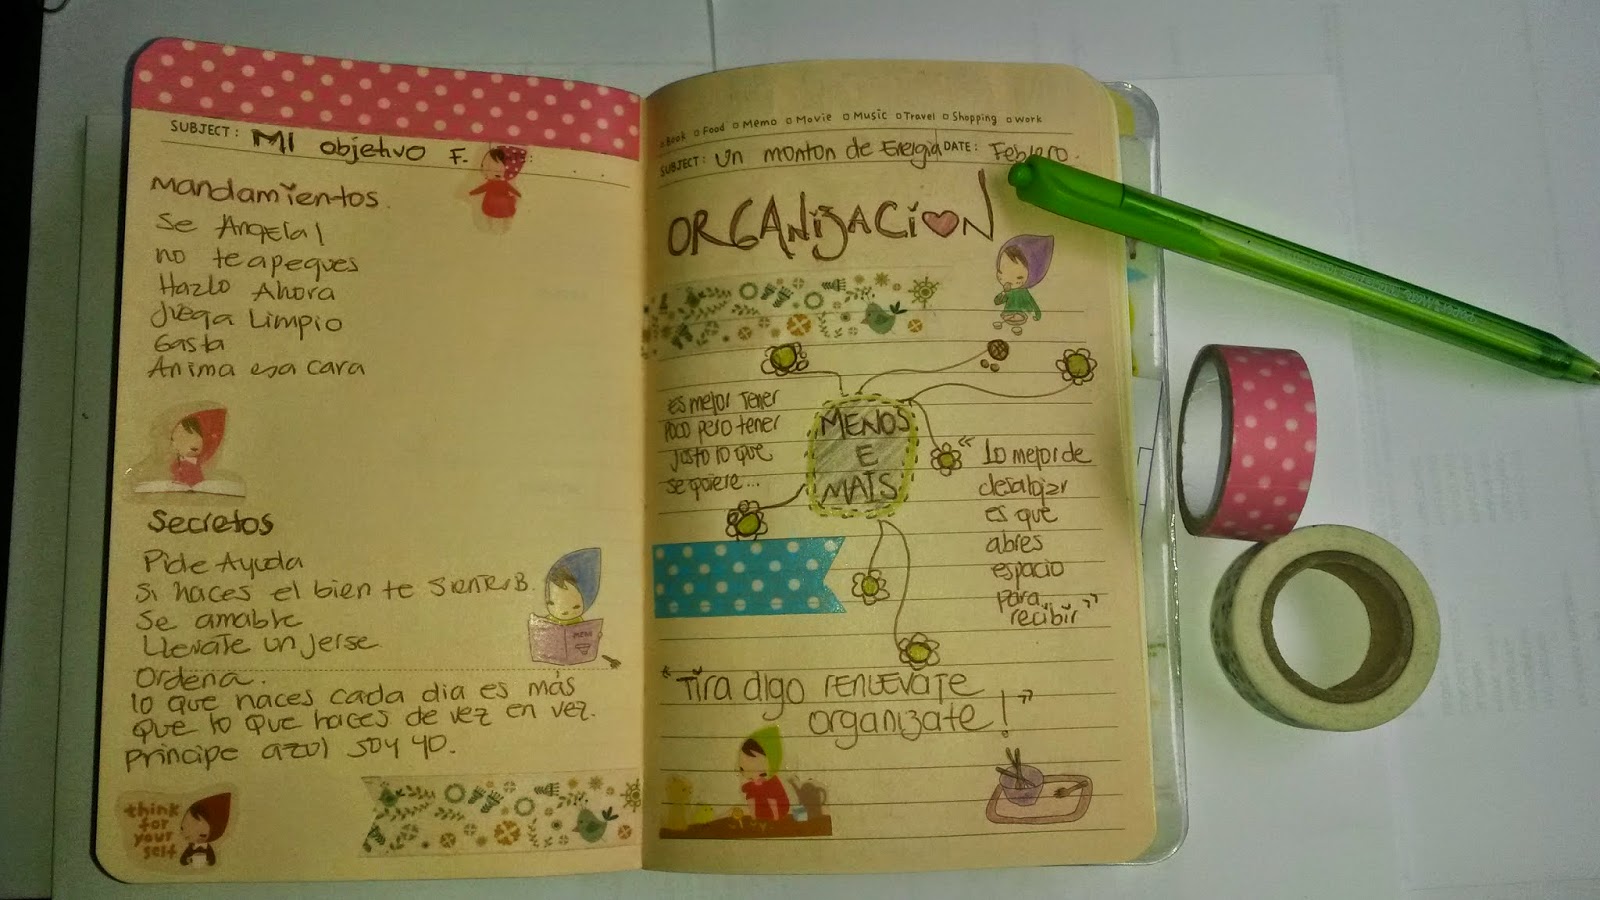 SUBJECT: Mi objetivo F.
Mandamientos.
Se Angela!
no te apeques
Hazlo Ahora
Juega Limpio
Gasta
Anima esa cara
Secretos
Pide Ayuda
Si haces el bien te Sientes B.
Se amable
Llevate un jerse
Ordena.
lo que haces cada dia es más
que lo que haces de vez en vez.
Principe azul soy yo.
think
for
your
self
MENU
Book Food Memo Movie Music Travel Shopping Work
SUBJECT: Un monton de Energia DATE: Febrero.
ORGANizACiON
es mejor tener
poco pero tener
justo lo que
se quiere...
MENOS
E
MAIS
"Lo mejor de
desalojar
es que
abres
espacio
para
recibir"
"Tira digo renuevate
organizate!"